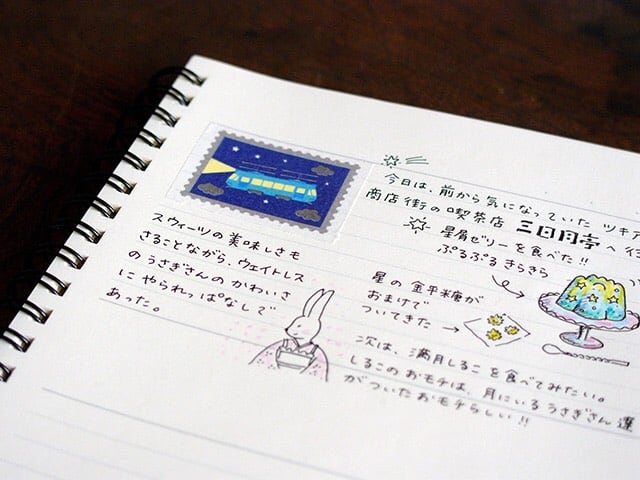 今日は、前から気になっていた ツキア
商店街の喫茶店 三日月亭 へ行
星屑ゼリーを食べた!!
ぷるぷる きらきら
星の 金平糖が
おまけで
ついてきた
次は、満月しるこ を食べてみたい。
しるこの おモチは、月にいる うさぎさん 達
がついた おモチらしい!!
スウィーツの美味しさも
さることながら、ウェイトレス
のうさぎさんの かわいさ
に やられっぱなしで
あった。